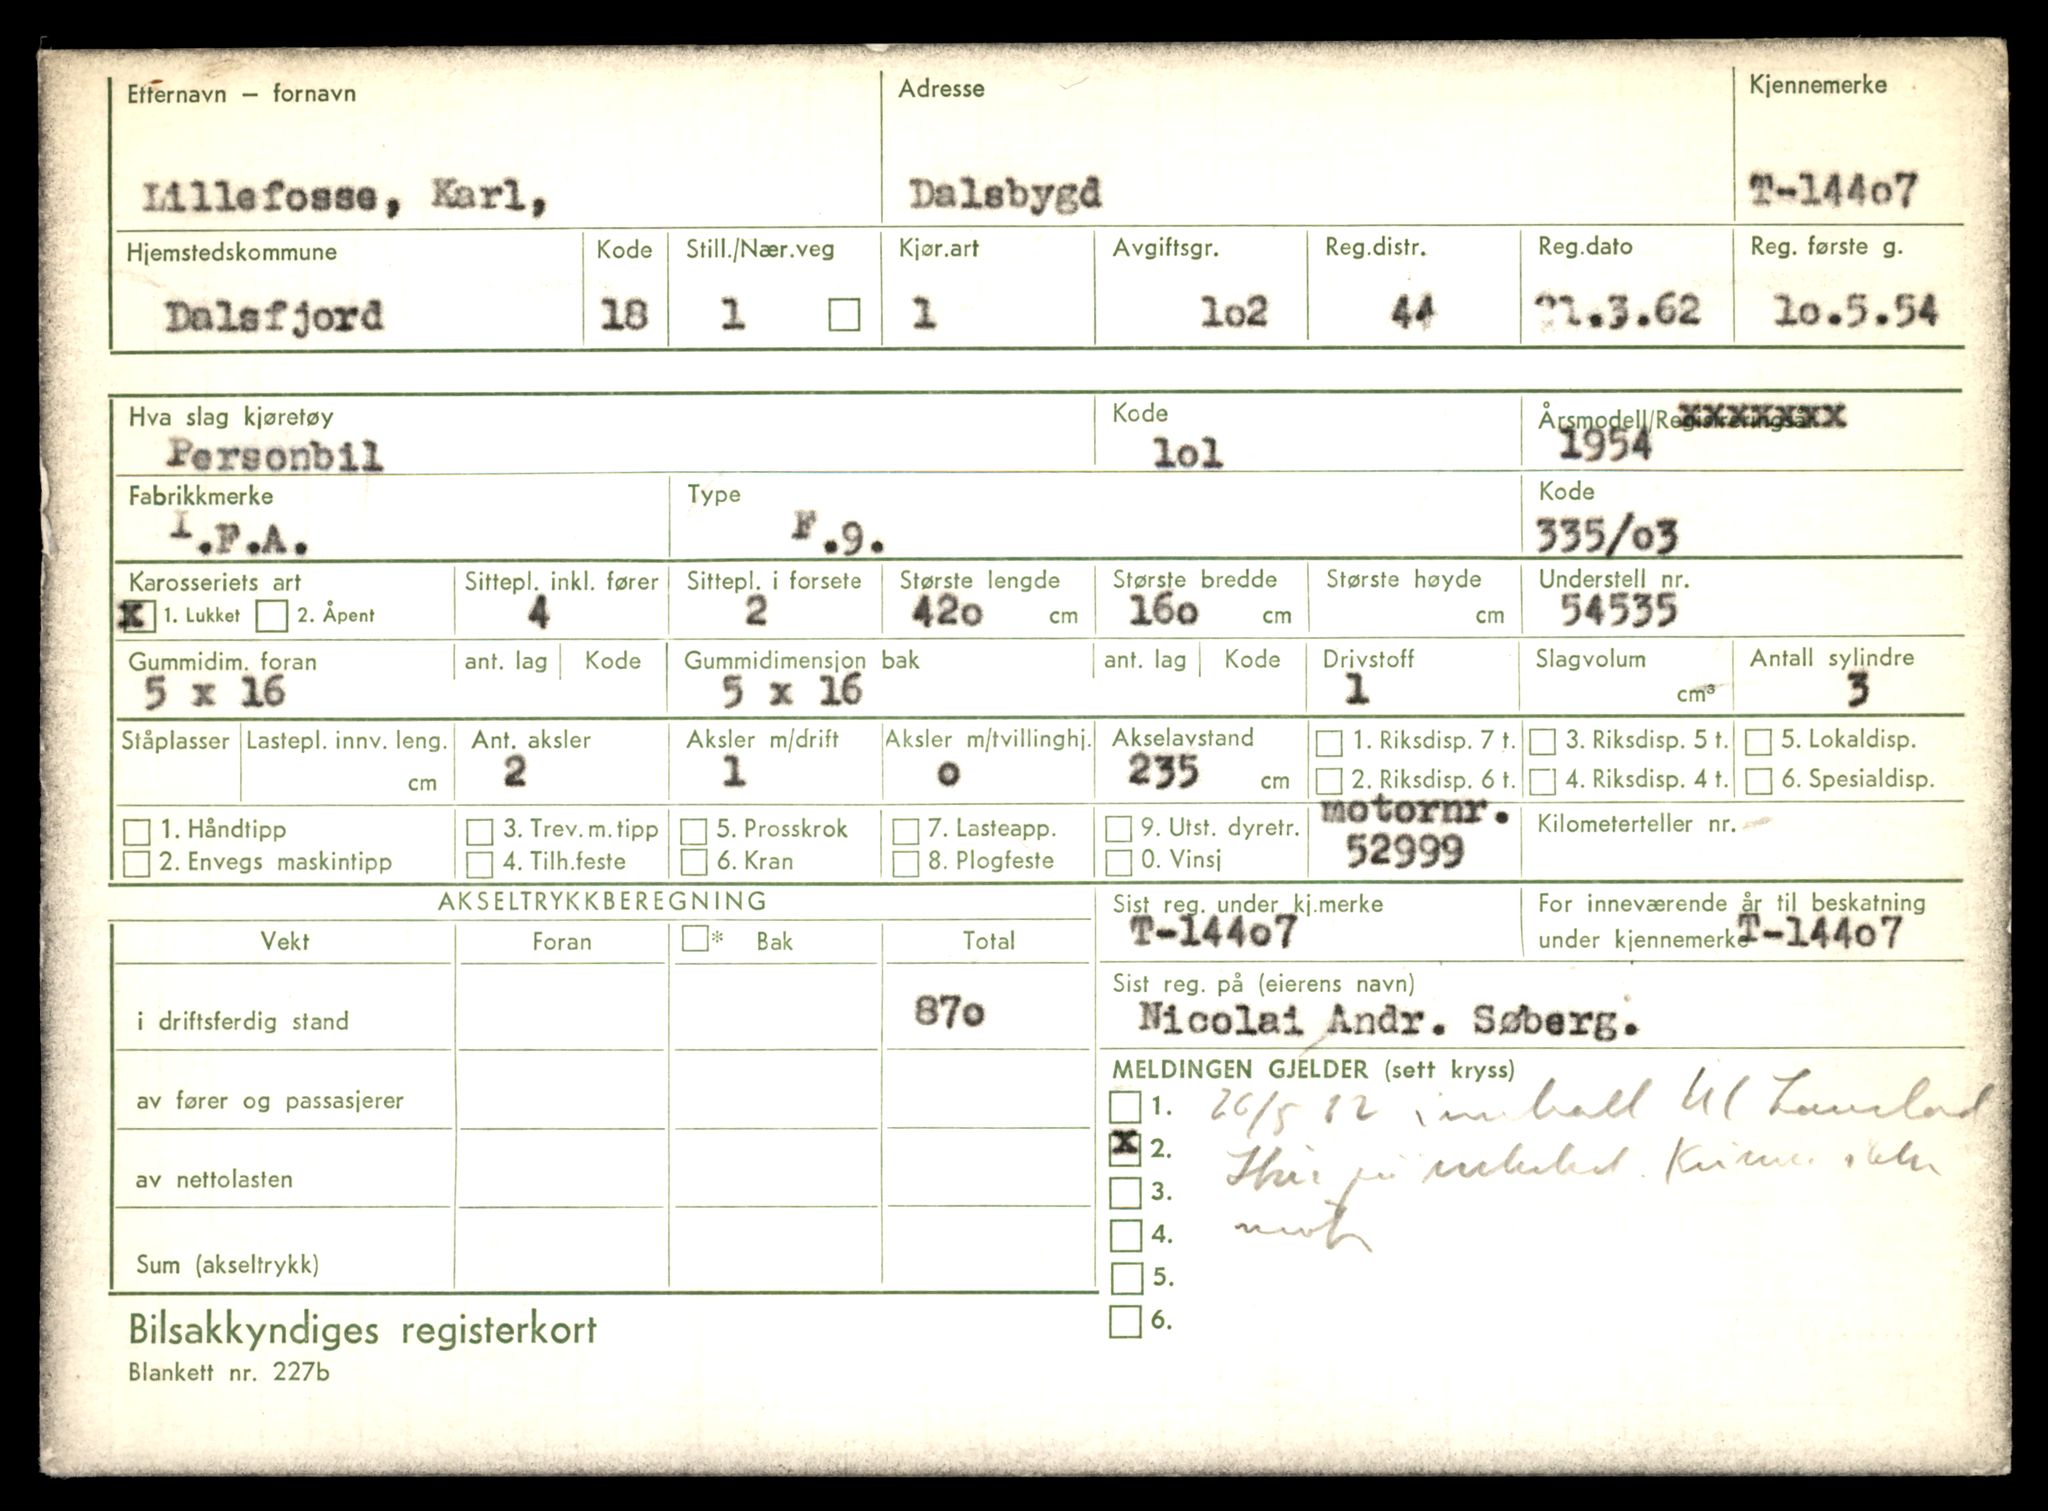 Etternavn – fornavn Adresse Kjennemerke
Lillefosse, Karl, Dalsbygd T-144o7
Hjemstedskommune Kode Still./Nær.veg Kjør.art Avgiftsgr. Reg.distr. Reg.dato Reg. første g.
Dalsfjord 18 1 1 lo2 44 1.3.62 lo.5.54
Hva slag kjøretøy Kode Årsmodell/Registreringsår xxxxxxx
Personbil lol 1954
Fabrikkmerke Type Kode
I.F.A. F.9. 335/o3
Karosseriets art Sittepl. inkl. fører Sittepl. i forsete Største lengde Største bredde Største høyde Understell nr.
x 1. Lukket 2. Åpent 4 2 42o cm 16o cm cm 54535
Gummidim. foran ant. lag Kode Gummidimensjon bak ant. lag Kode Drivstoff Slagvolum Antall sylindre
5 x 16 5 x 16 1 cm³ 3
Ståplasser Lastepl. innv. leng. Ant. aksler Aksler m/drift Aksler m/tvillinghj. Akselavstand 1. Riksdisp. 7 t. 3. Riksdisp. 5 t. 5. Lokaldisp.
cm 2 1 o 235 cm 2. Riksdisp. 6 t. 4. Riksdisp. 4 t. 6. Spesialdisp.
1. Håndtipp 3. Trev. m. tipp 5. Prosskrok 7. Lasteapp. 9. Utst. dyretr. motornr. Kilometerteller nr.
2. Envegs maskintipp 4. Tilh.feste 6. Kran 8. Plogfeste 0. Vinsj 52999
AKSELTRYKKBEREGNING Sist reg. under kj.merke For inneværende år til beskatning
Vekt Foran * Bak Total T-144o7 under kjennemerke T-144o7
Sist reg. på (eierens navn)
i driftsferdig stand 87o Nicolai Andr. Søberg.
MELDINGEN GJELDER (sett kryss)
av fører og passasjerer 1.
x 2.
av nettolasten 3.
4.
Sum (akseltrykk) 5.
Bilsakkyndiges registerkort 6.
Blankett nr. 227b